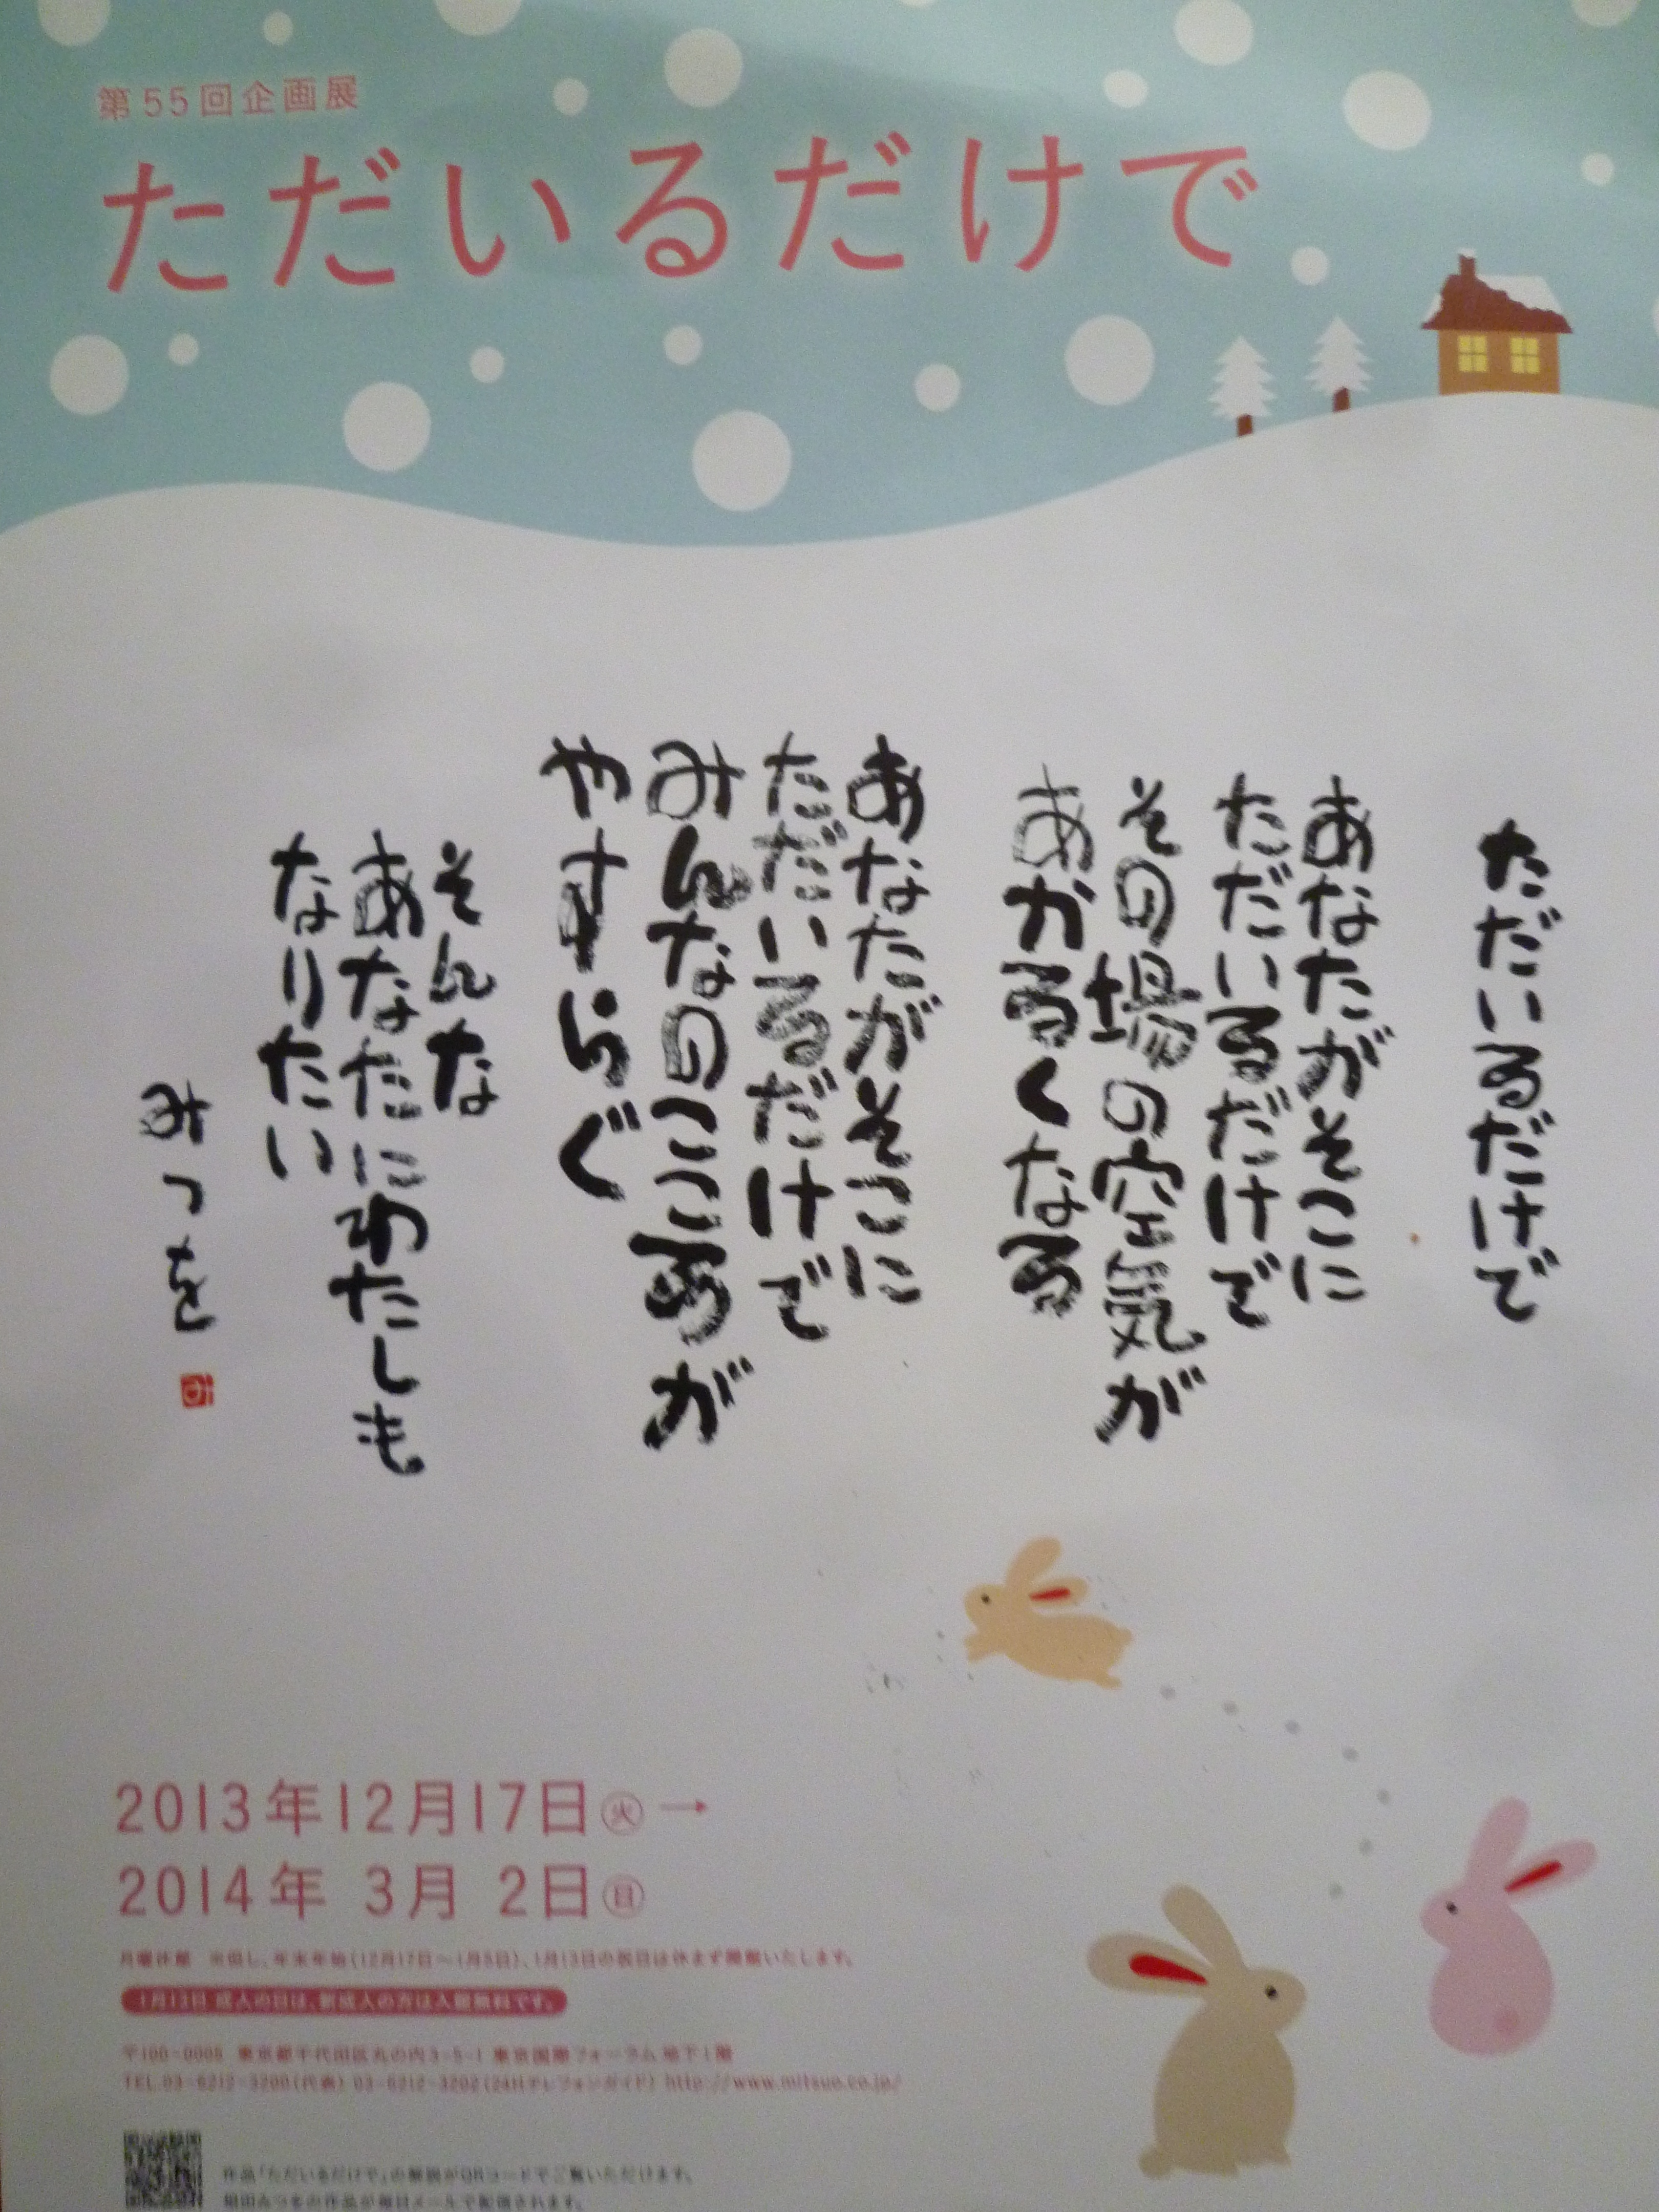 第55回企画展
ただいるだけで
ただいるだけで
あなたがそこに
ただいるだけで
その場の空気が
あかるくなる
あなたがそこに
ただいるだけで
みんなのこころが
やすらぐ
そんな
あなたにわたしも
なりたい
みつを
2013年12月17日㊋→
2014年 3月 2日㊐
月曜休館 ※但し、年末年始(12月17日〜1月5日)、1月13日の祝日は休まず開館いたします。
1月13日 成人の日は、新成人の方は入館無料です。
〒100-0005 東京都千代田区丸の内3-5-1 東京国際フォーラム 地下1階
TEL.03-6212-3200(代表) 03-6212-3202(24Hテレフォンガイド) http://www.mitsuo.co.jp/
作品「ただいるだけで」の解説がQRコードでご覧いただけます。
相田みつをの作品が毎日メールで配信されます。